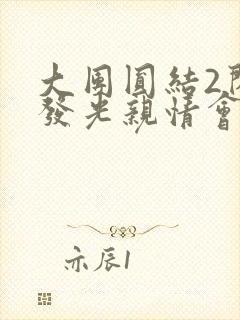 大團圓結2
發光親情會
亦辰1